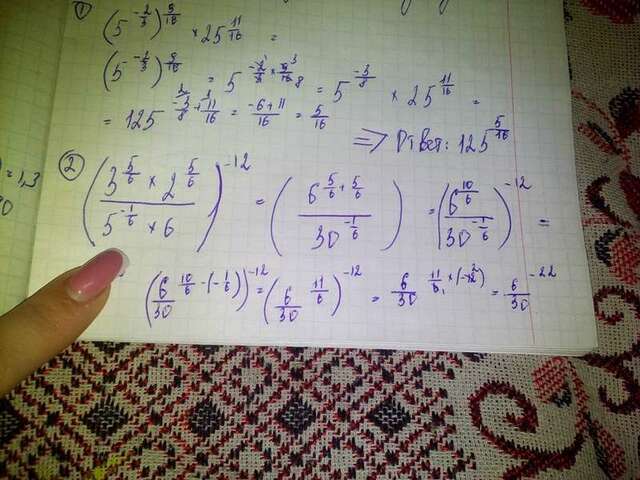 ① (5^{-2/3})^{9/16} × 25^{11/16} =
(5^{-2/3})^{9/16} = 5^{-2/3 × 9/16} = 5^{-3/8} × 25^{11/16} =
= 125^{-3/8 + 11/16} = \frac{-6+11}{16} = \frac{5}{16}
=> Ответ: 125^{5/16}
② (\frac{3^{5/6} × 2^{5/6}}{5^{-1/6} × 6})^{-12} = (\frac{6^{5/6 + 5/6}}{30^{-1/6}}) = (\frac{6^{10/6}}{30^{-1/6}})^{-12} =
(\frac{6}{30}^{10/6 - (-1/6)})^{-12} = (\frac{6}{30}^{11/6})^{-12} = \frac{6}{30}^{11/6 × (-12)} = \frac{6}{30}^{-22}